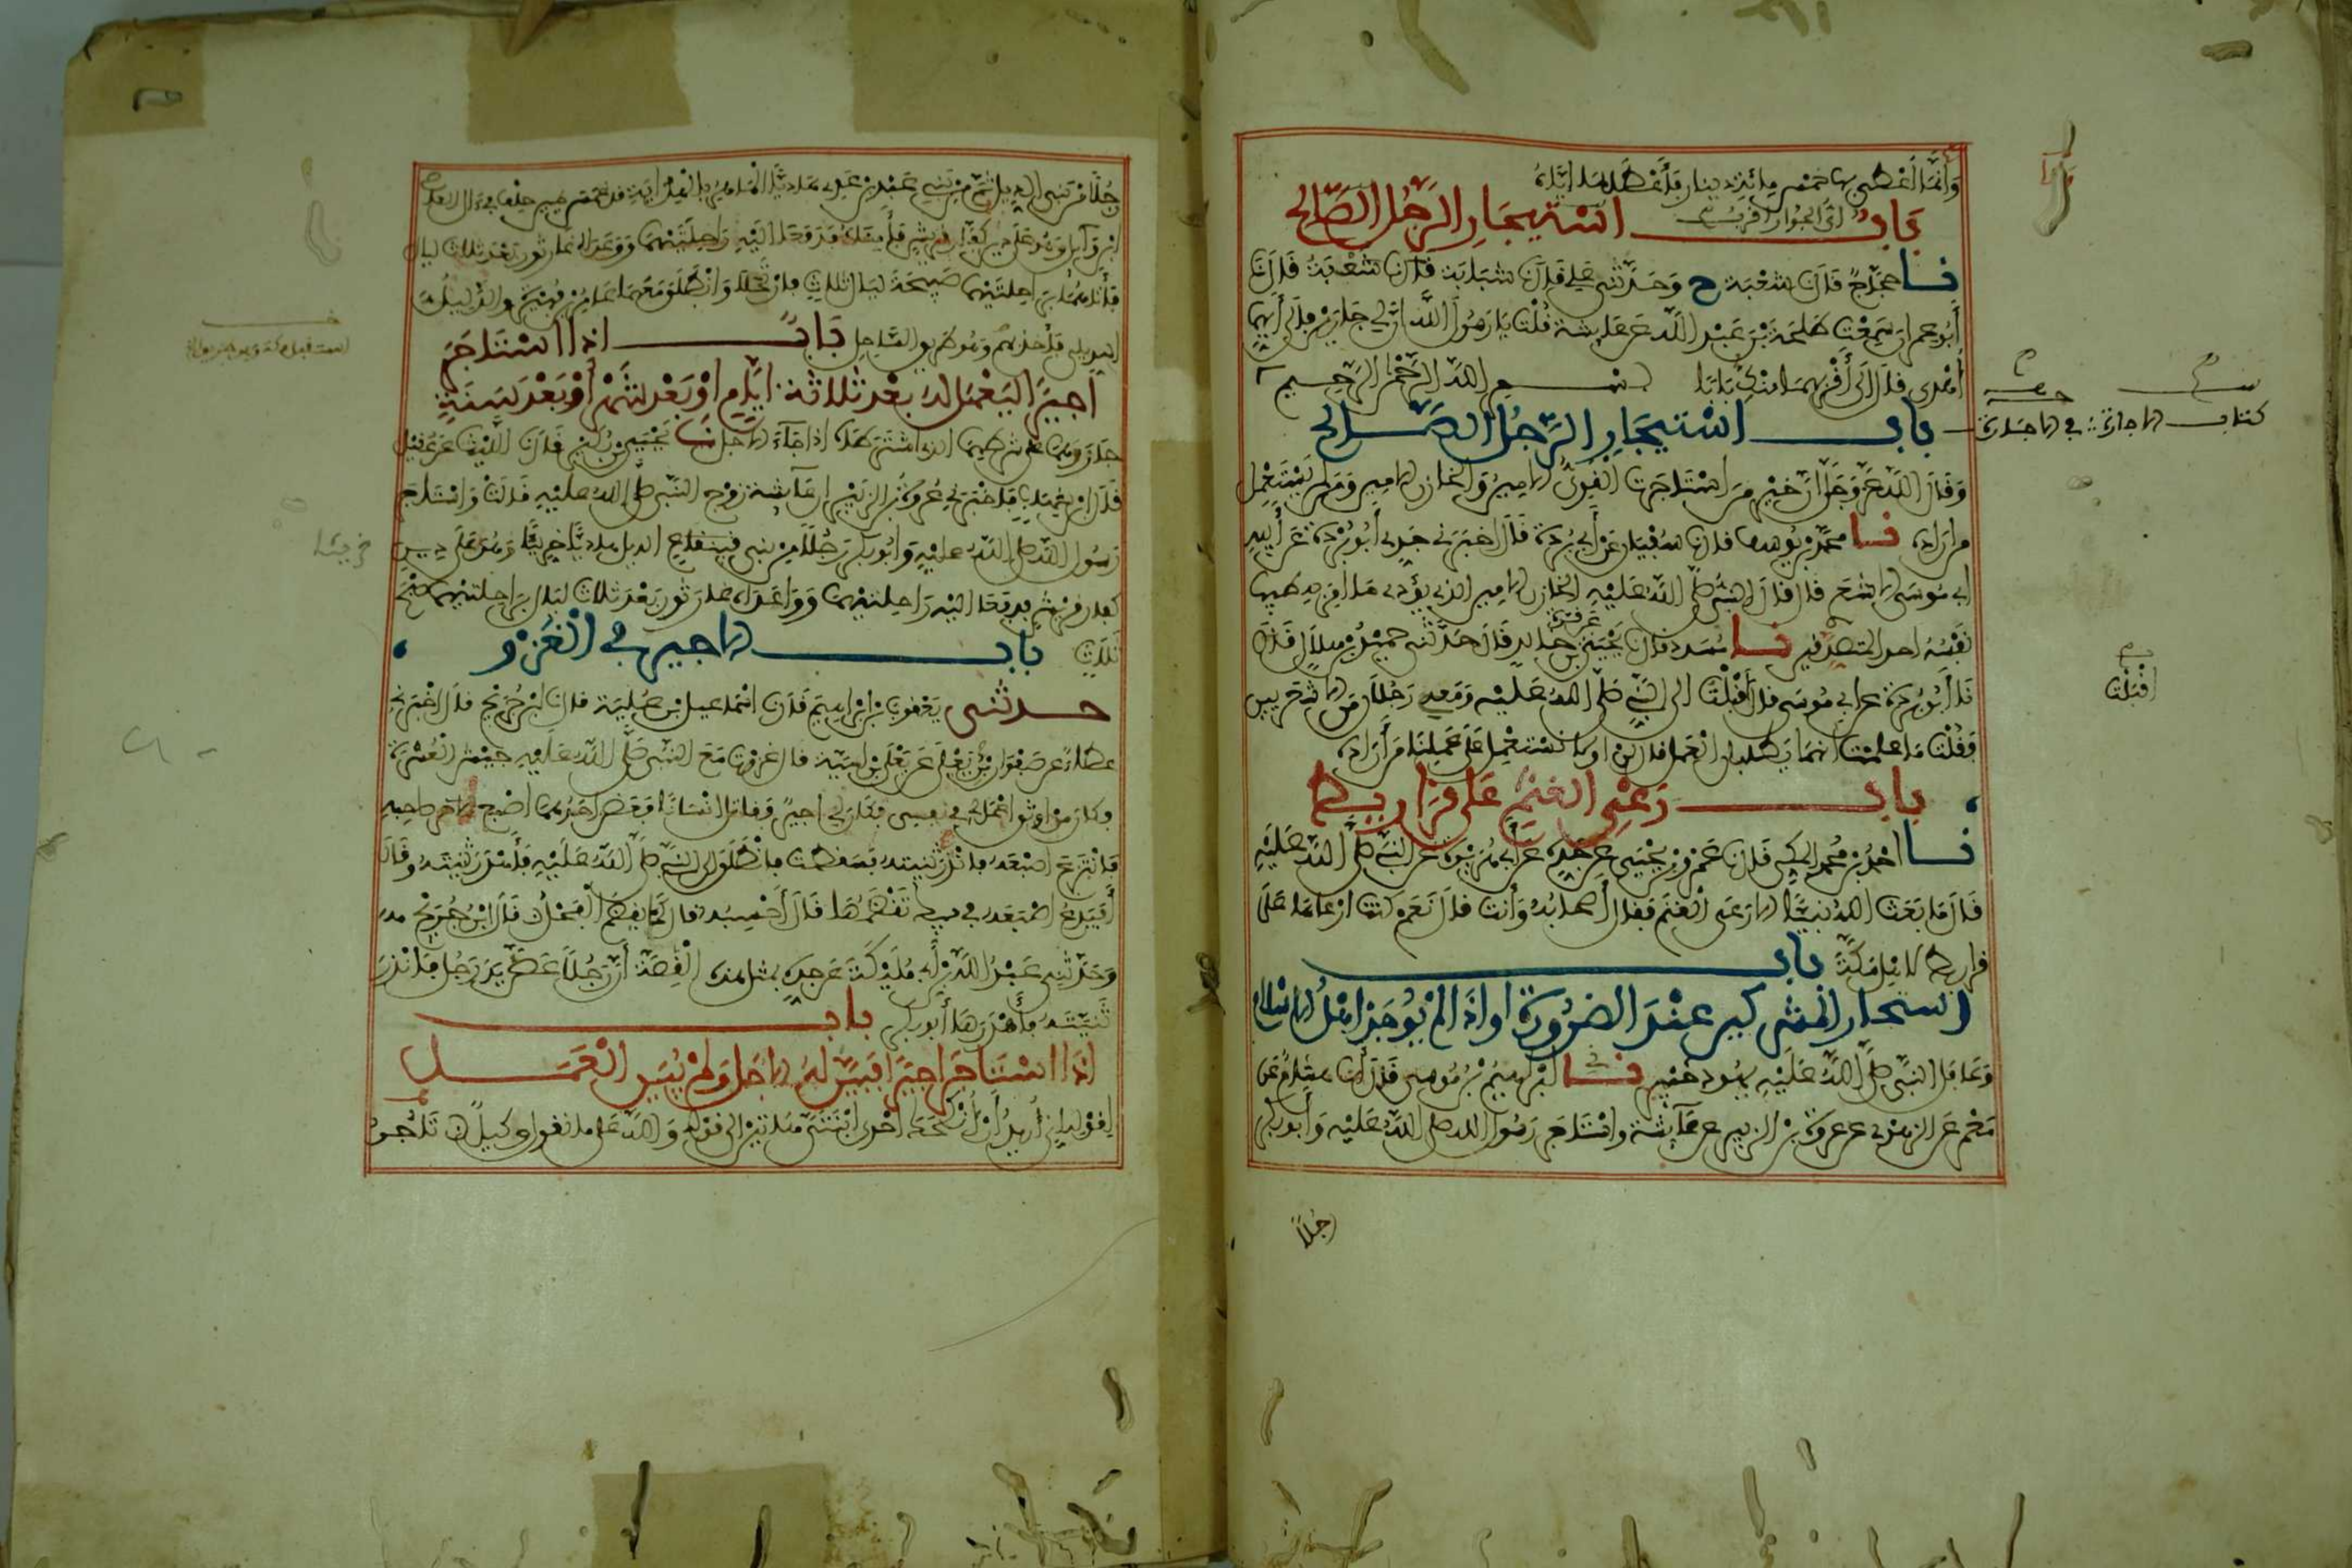 وَإِنَّمَا أُعْطَى بها خَمْس مِائَةِ دينار فَأَعْطَاهَا إيَّاهُ
بَابُ أي الجوار أقرب استيجار الرجل الصالح
نا حجاج قال نا شعبة ح وحدثني علي قال نا شبابة قال نا شعبة قال نا
أبو عمران سمعت طلحة بن عبد الله عن عائشة قلت يا رسول الله ان لي جارين فالى أيهما
أهدى قال إلى أقربهما منك بابا بسم الله الرحمن الرحيم
باب استيجار الرجل الصالح
كتاب الاجارة في الاجارة
وقال الله عز وجل ان خير من استاجرت القوي الامين والخازن الامين ومن لم يستعمل
من اراده نا محمد بن يوسف قال نا سفيان عن أبي بردة قال اخبرني جدي أبو بردة عن أبيه
ابي موسى الاشعري قال قال النبي صلى الله عليه الخازن الامين الذي يؤدي ما امر به طيبة
نفسه احد المتصدقين نا مسدد قال نا يحيى عن قرة بن خالد قال حدثني حميد بن هلال قال نا
أبو بردة عن ابي موسى قال أقبلت الى النبي صلى الله عليه ومعي رجلان من الاشعريين
أقبلت
فقلت ما علمت انهما يطلبان العمل قال لن او لا نستعمل على عملنا من أراده
باب رعي الغنم على قراريط
نا احمد بن محمد المكي قال نا عمرو بن يحيى عن جده عن أبي هريرة عن النبي صلى الله عليه
قال ما بعث الله نبيا الا رعى الغنم فقال أصحابه وأنت قال نعم كنت ارعاها على
قراريط لاهل مكة باب
استيجار المشركين عند الضرورة او اذا لم يوجد اهل الاسلام
وعامل النبي صلى الله عليه يهود خيبر نا ابراهيم بن موسى قال أنا هشام عن
معمر عن الزهري عن عروة بن الزبير عن عائشة واستاجر رسول الله صلى الله عليه وأبو بكر
رجلا
رجلا من بني الديل ثم من بني عبد بن عدي هاديا الماهر بالهداية قد غمس يمين حلف في ال العاص
ابن وآيل وهو على دين كفار قريش فأمناه فدفعا اليه راحلتيهما ووعداه غار ثور بعد ثلاث ليال
فأتاهما براحلتيهما صبيحة ليال ثلاث فارتحلا وانطلق معهما عامر بن فهيرة والدليل
الديلي فأخذ بهم وهو طريق الساحل باب اذا استاجر
اجيرا ليعمل له بعد ثلاثة أيام او بعد شهر أو بعد سنة
جاز وهما على شرطهما الذي اشترطاه اذا جاء الاجل نا يحيى بن بكير قال نا الليث عن عقيل
قال ابن شهاب فاخبرني عروة بن الزبير ان عآئشة زوج النبي صلى الله عليه قالت واستاجر
رسول الله صلى الله عليه وابو بكر رجلا من بني الديل هاديا خريتا وهو على دين
خريتا
كفار قريش فدفعا اليه راحلتيهما وواعداه غار ثور بعد ثلاث ليال براحلتيهما صبح
ثلاث باب الاجير في الغزو
حدثني يعقوب بن ابراهيم قال نا اسماعيل بن علية قال نا ابن جريج قال اخبرني
عطاء عن صفوان بن يعلى عن يعلى بن امية قال غزوت مع النبي صلى الله عليه جيش العسرة
وكان من اوثق اعمالي في نفسي فكان لي اجير فقاتل انسانا فعض احدهما اصبع صاحبه
فانتزع اصبعه فاندر ثنيته فسقطت فانطلق الى النبي صلى الله عليه فأهدر ثنيته وقال
أفيدع اصبعه في فيك تقضمها قال أحسبه قال كما يقضم الفحل قال ابن جريج
وحدثني عبد الله بن أبي مليكة عن جده بمثل هذه القصة أن رجلا عض يد رجل فاندر
ثنيته فأهدرها أبو بكر باب
اذا استاجر اجيرا فبين له الاجل ولم يبين العمل
لقوله اني أريد أن أنكحك احدى ابنتي هاتين الى قوله والله على ما نقول وكيل تاجر